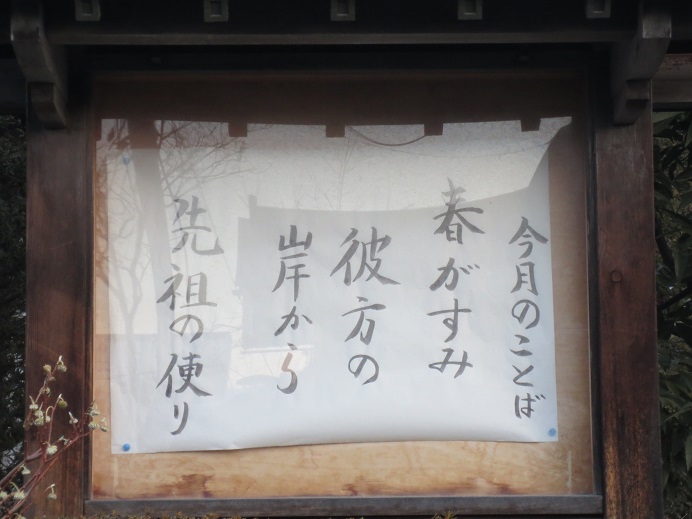 今月のことば
春がすみ
彼方の
岸から
先祖の便り